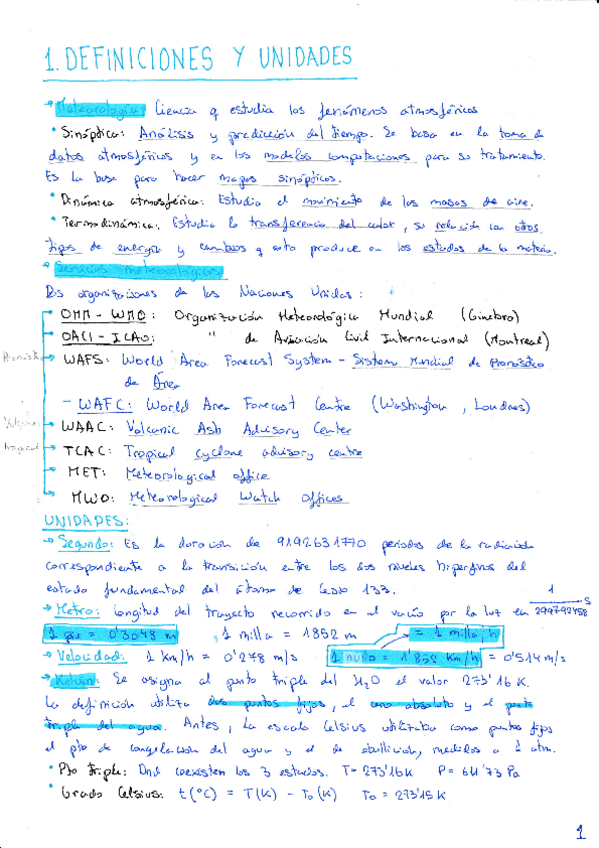 1. DEFINICIONES Y UNIDADES
→ Meteorología: Ciencia q estudia los fenómenos atmosféricos
• Sinóptica: Análisis y predicción del tiempo. Se basa en la toma de
datos atmosféricos y en los modelos computaciones para su tratamiento.
Es la base para hacer mapas sinópticos.
• Dinámica atmosférica: Estudia el movimiento de las masas de aire.
• Termodinámica: Estudia la transferencia del calor, su relación con otros
tipos de energía y cambios q esto produce en los estados de la materia.
→ Servicios meteorológicos:
Dos organizaciones de las Naciones Unidas:
→ OMM - WMO: Organización Meteorológica Mundial (Ginebra)
→ OACI - ICAO: " de Aviación Civil Internacional (Montreal)
→ WAFS: World Area Forecast System - Sistema Mundial de Pronóstico
de Área
- WAFC: World Area Forecast Centre (Washington, Londres)
→ WAAC: Volcanic Ash Advisory Center
→ TCAC: Tropical cyclone advisory centre
→ MET: Meteorological office
→ MWO: Meteorological Watch Offices
UNIDADES:
→ Segundo: Es la duración de 9192631770 periodos de la radiación
correspondiente a la transición entre los dos niveles hiperfinos del
estado fundamental del átomo de Cesio 133.
→ Metro: longitud del trayecto recorrido en el vacío por la luz en 1/299792458 s
1 pie = 0'3048 m 1 milla = 1852 m = 1 milla/h
→ Velocidad: 1 km/h = 0'278 m/s 1 nudo = 1'852 km/h = 0'514 m/s
→ Kelvin: Se asigna al punto triple del H2O el valor 273'16 K.
La definición utiliza dos puntos fijos, el cero absoluto y el punto
triple del agua. Antes, la escala Celsius utilizaba como puntos fijos
el pto de congelación del agua y el de ebullición, medidos a 1 atm.
• Pto triple: Dnd coexisten los 3 estados. T = 273'16K P = 611'73 Pa
• Grado Celsius: t(°C) = T(K) - To(K) To = 273'15 K
1